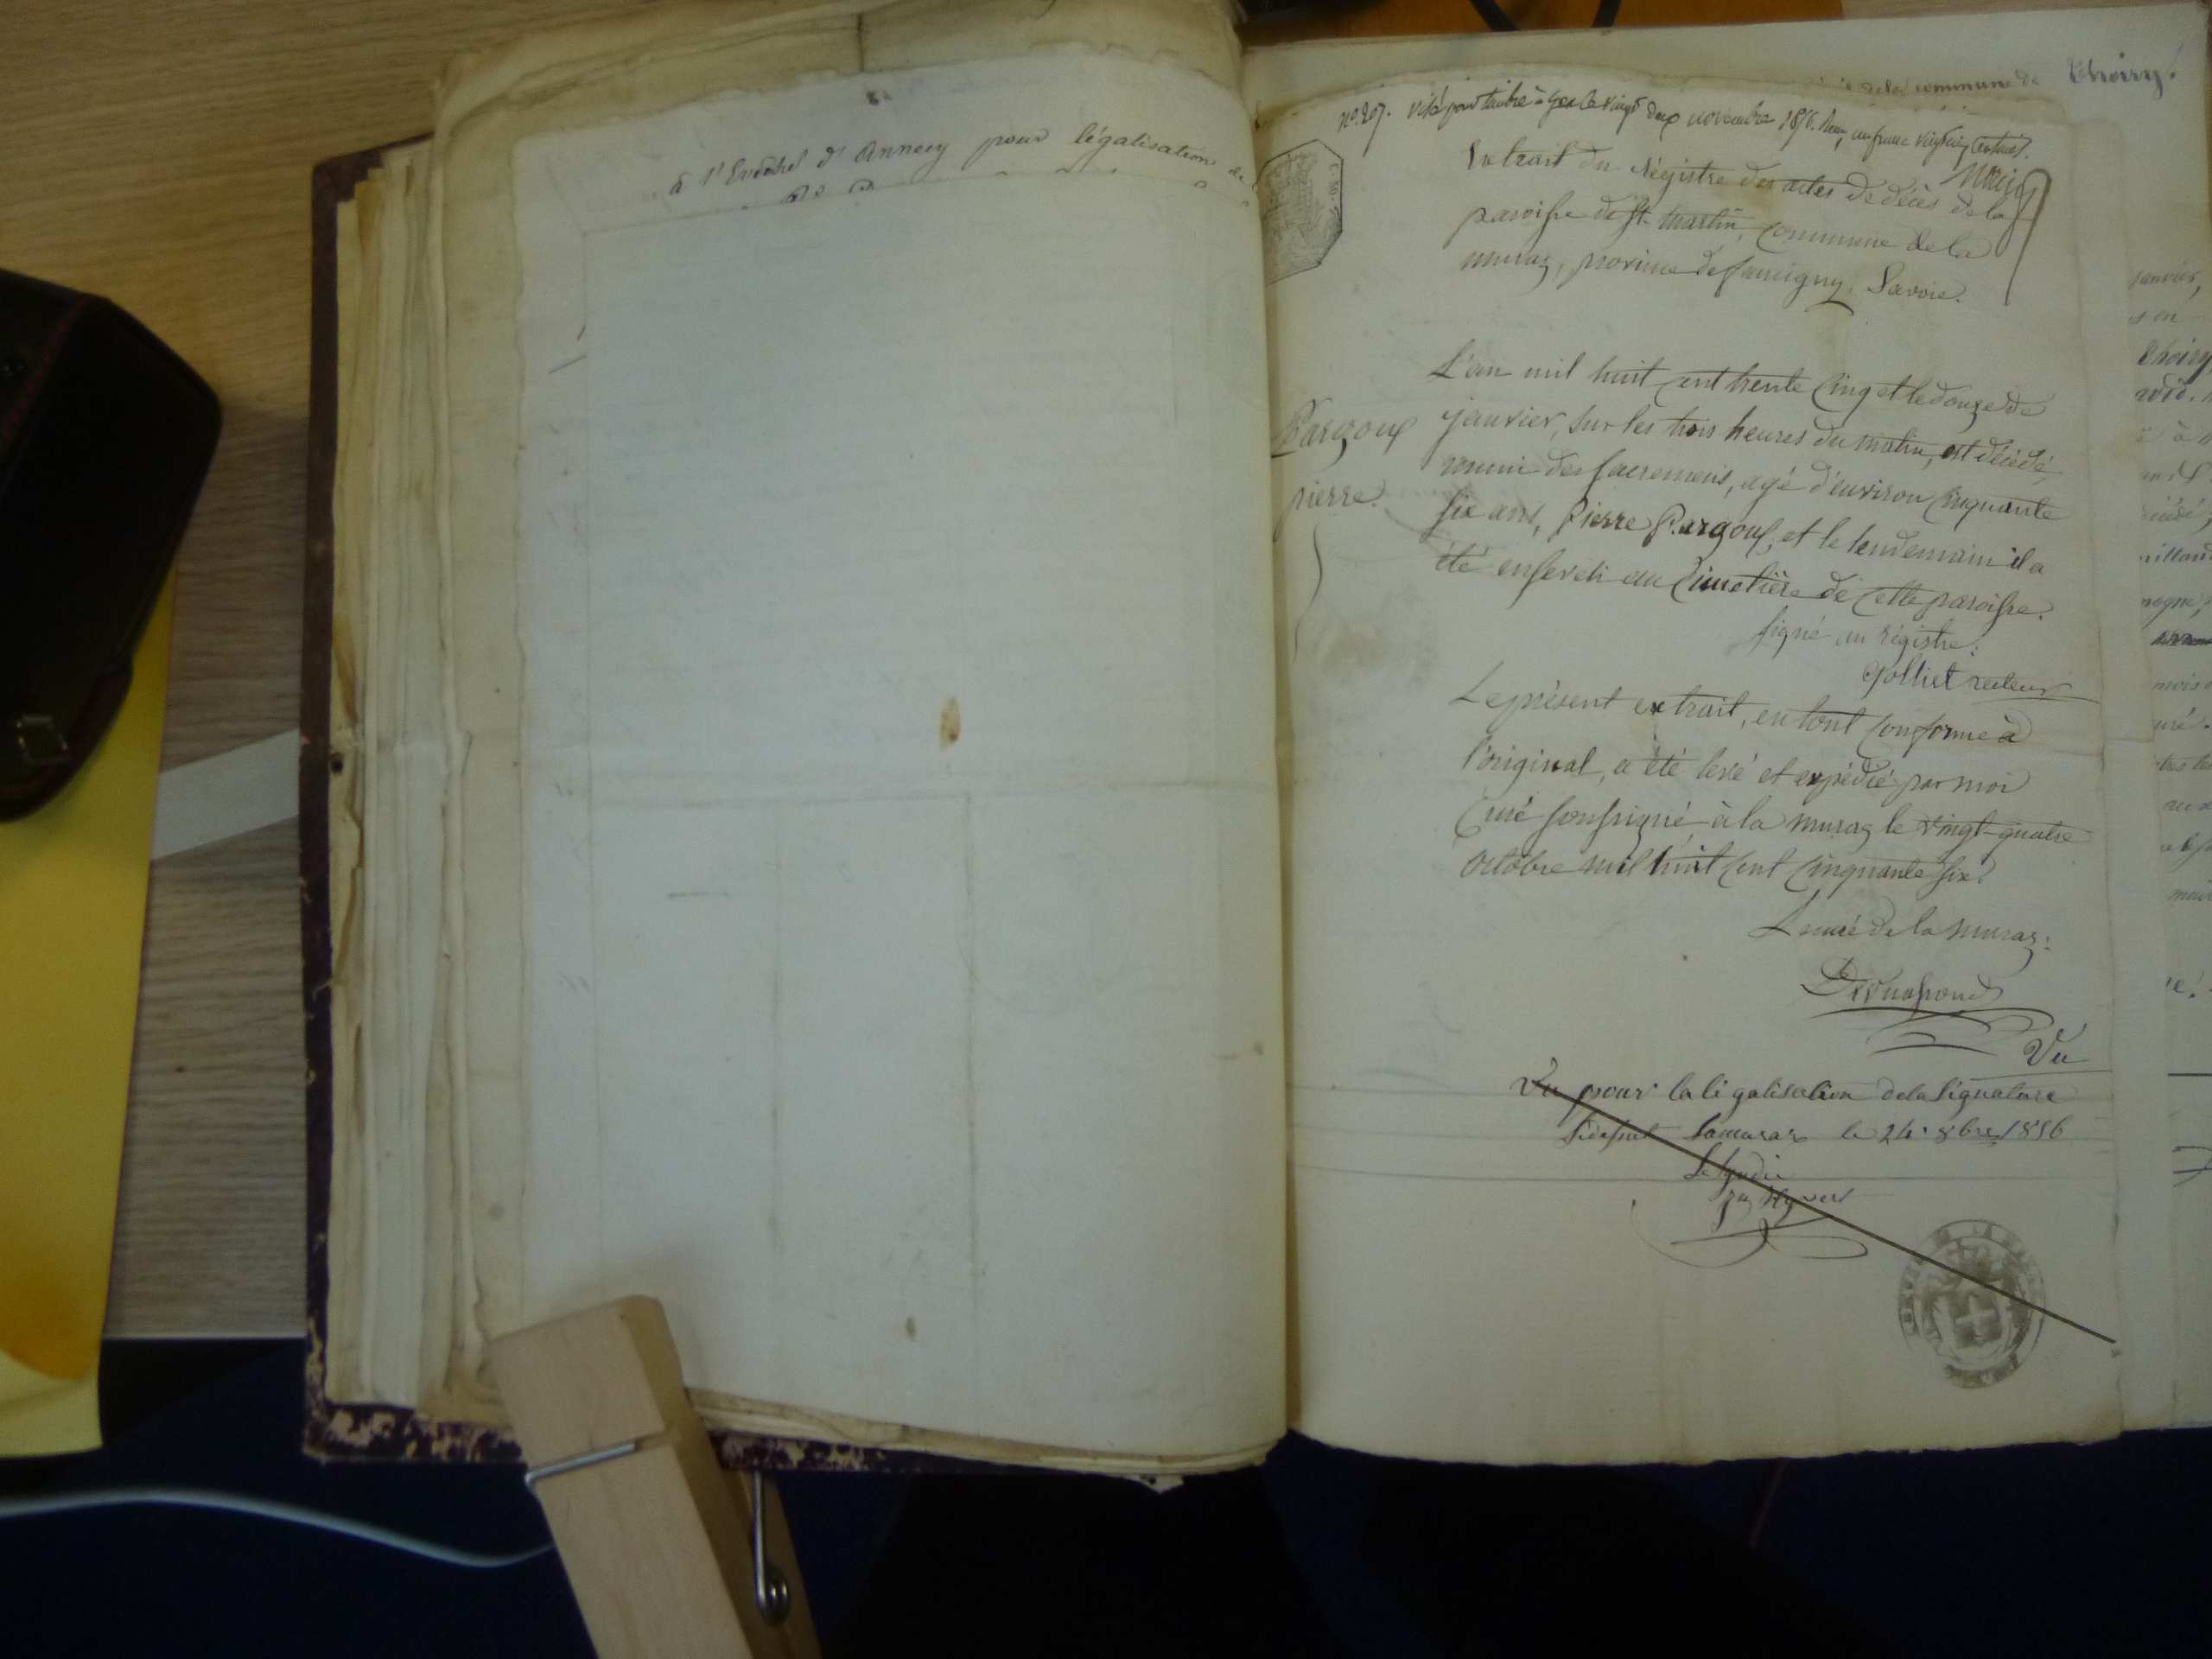 à l'Evêché d'Annecy pour légalisation de
de la commune de Thoiry
N° 207. Visé pour timbre à Gex le vingt deux novembre 1856. Reçu un franc vingt cinq centimes.
Extrait du Régistre des actes de décès de la
paroisse de St. Martin, commune de la
muraz, province de faucigny, Savoie.
Pargoux
pierre.
L'an mil huit cent trente cinq et le douze de
janvier, sur les trois heures du matin, est décédé
muni des sacremens, agé d'environ cinquante
six ans, Pierre Pargoux, et le lendemain il a
été enseveli au cimetière de cette paroisse.
signé au régistre:
Jolliet recteur
Le présent extrait, en tout conforme à
l'original, a été levé et expédié par moi
Curé soussigné, à la muraz le vingt-quatre
octobre mil huit cent cinquante six.
Le curé de la muraz:
Vu
Vu pour la légalisation de la Signature
Lamuraz le 24. 8bre 1856
Le Sindic
janvier,
Thoiry